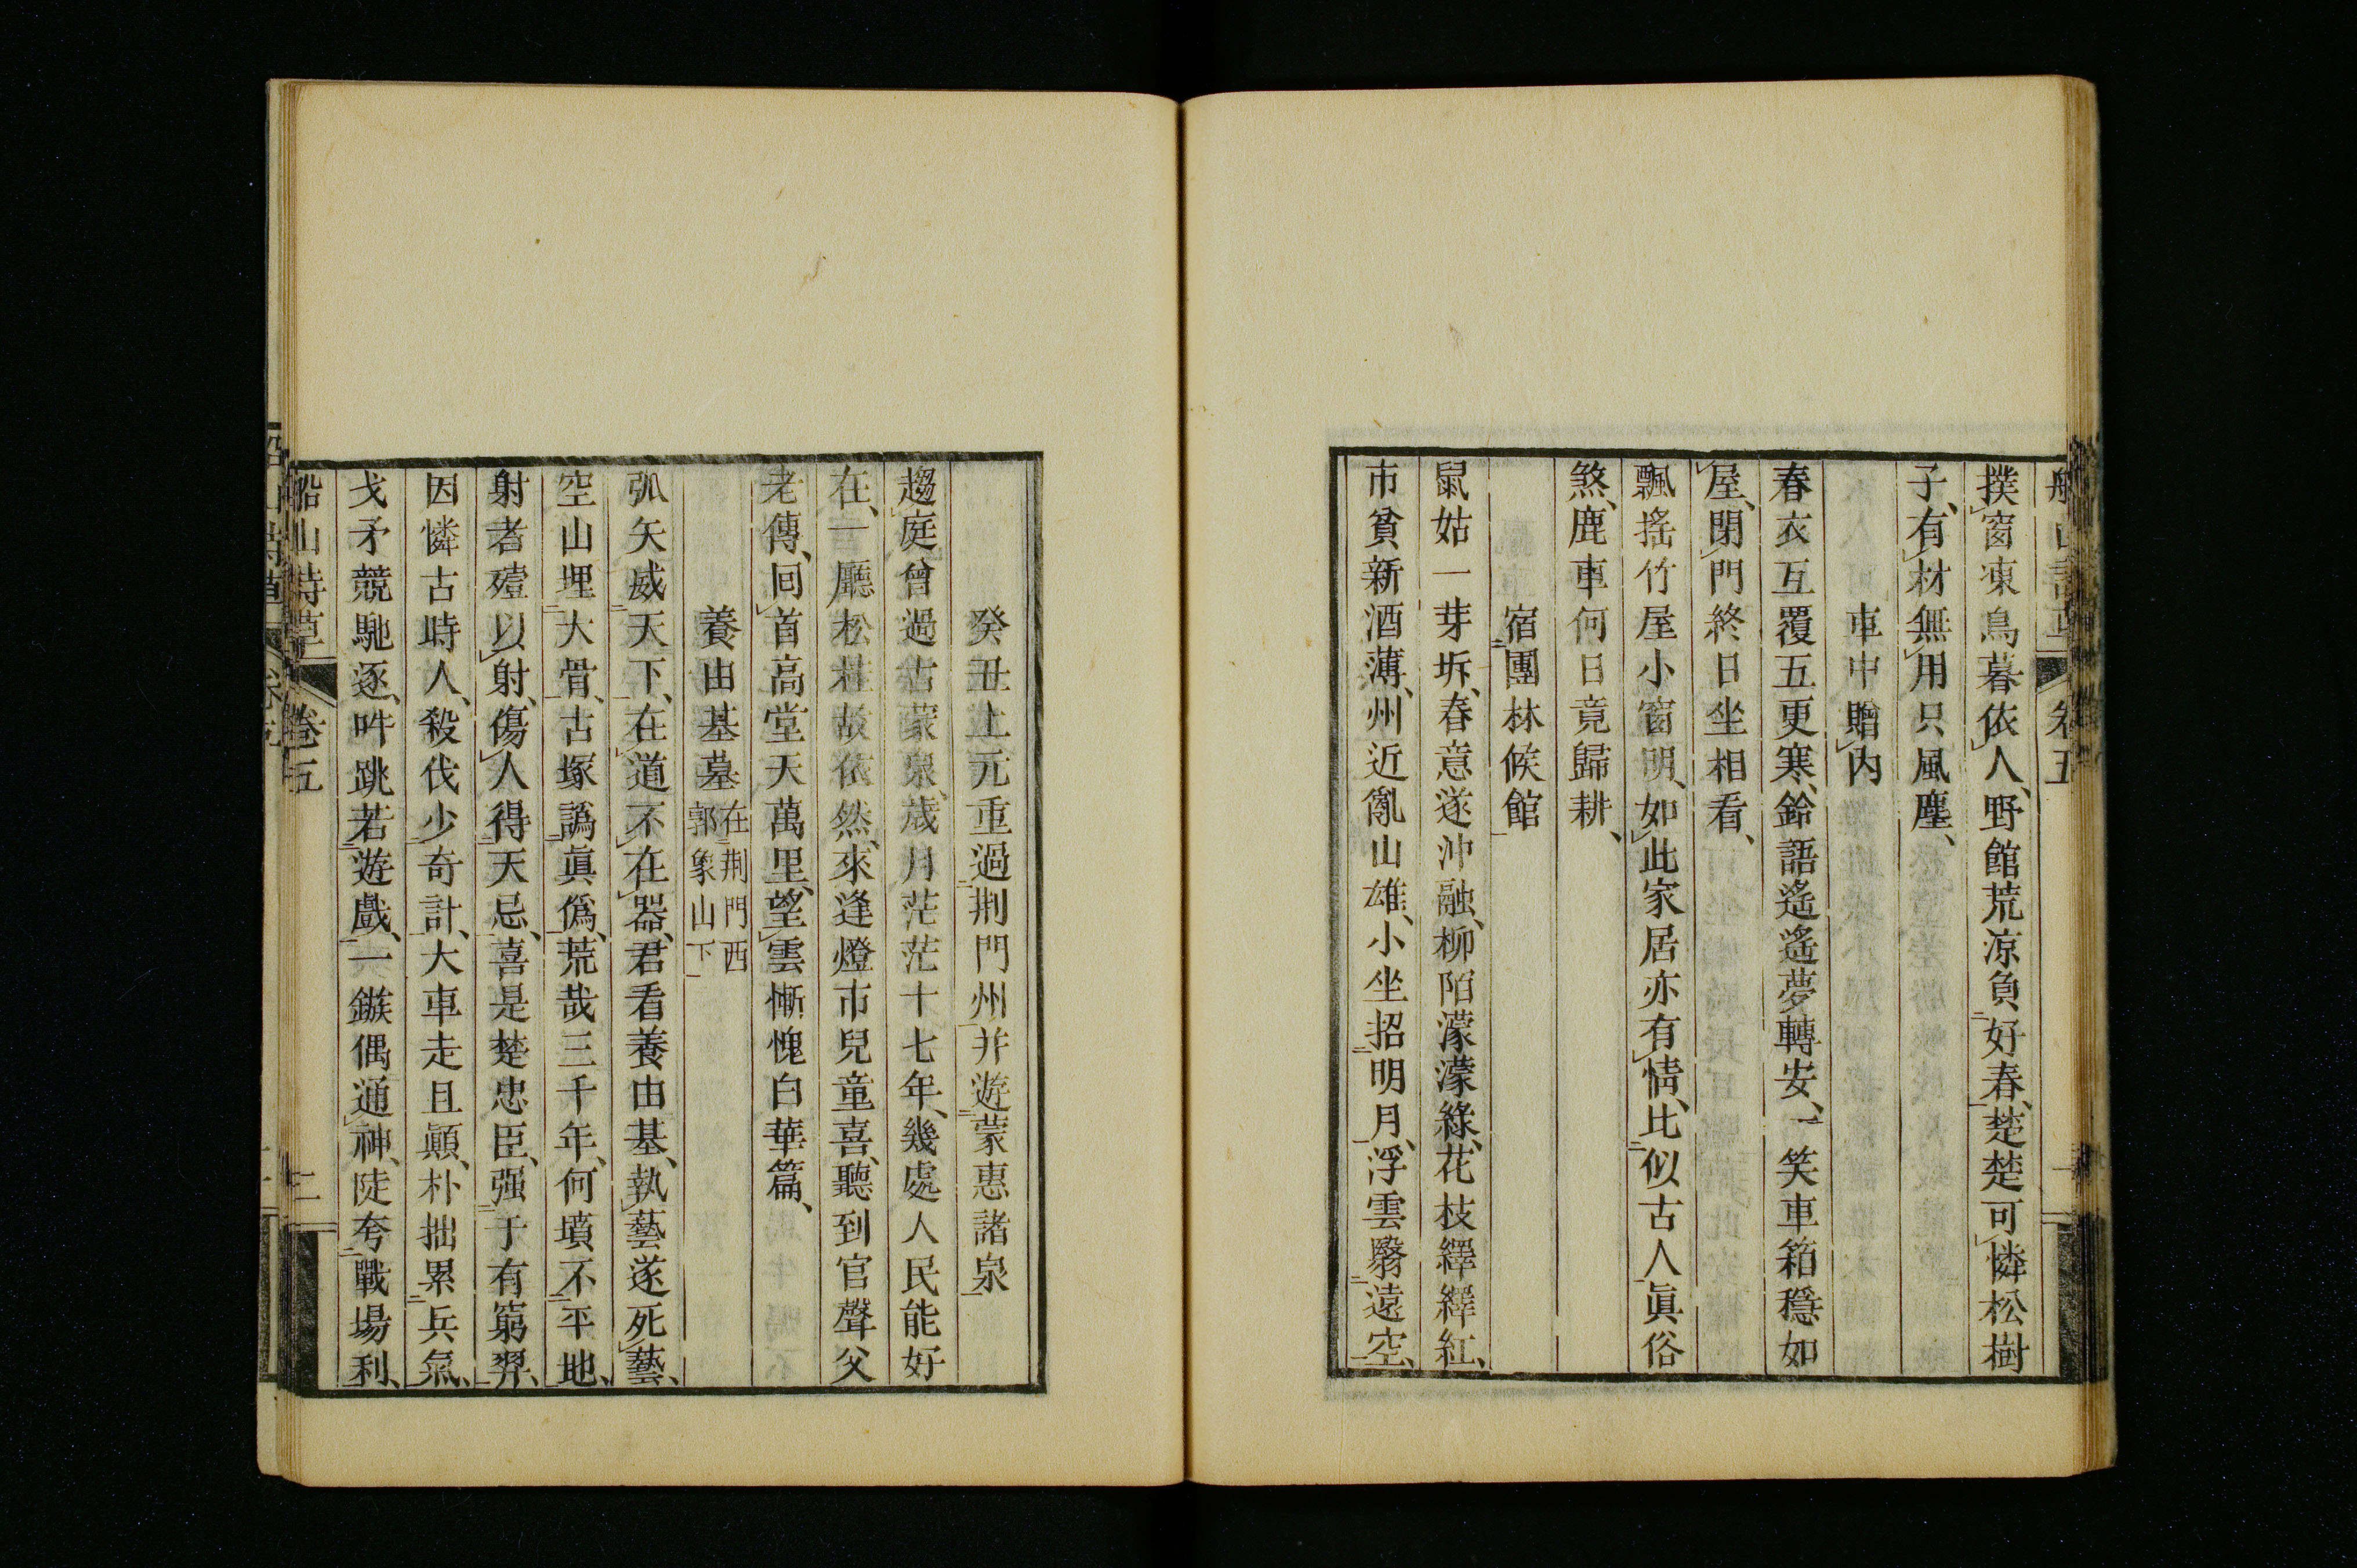 船山詩草 卷五
撲窗凍鳥暮依人、野館荒凉負好春、楚楚可憐松樹
子、有材無用只風塵、
車中贈內
春衣互覆五更寒、鈴語遙遙夢轉安、一笑車箱穩如
屋、閉門終日坐相看、
飄搖竹屋小窗明、如此家居亦有情、比似古人眞俗
煞、鹿車何日竟歸耕、
宿團林候館
鼠姑一芽坼、春意遂沖融、柳陌濛濛綠、花枝繹繹紅、
市貧新酒薄、州近亂山雄、小坐招明月、浮雲翳遠空、
癸丑上元重過荆門州并遊蒙惠諸泉
趨庭曾過古蒙泉、歲月茫茫十七年、幾處人民能好
在、一廳松桂故依然、來逢燈市兒童喜、聽到官聲父
老傳、回首高堂天萬里、望雲慚愧白華篇、
養由基墓 在荆門西郭象山下
弧矢威天下、在道不在器、君看養由基、執藝遂死藝、
空山埋大骨、古塚譌眞僞、荒哉三千年、何墳不平地、
射者殪以射、傷人得天忌、喜是楚忠臣、强于有窮羿、
因憐古時人、殺伐少奇計、大車走且顚、朴拙累兵氣、
戈矛競馳逐、吽跳若遊戲、一鏃偶通神、陡夸戰場利、
船山詩草 卷五 二